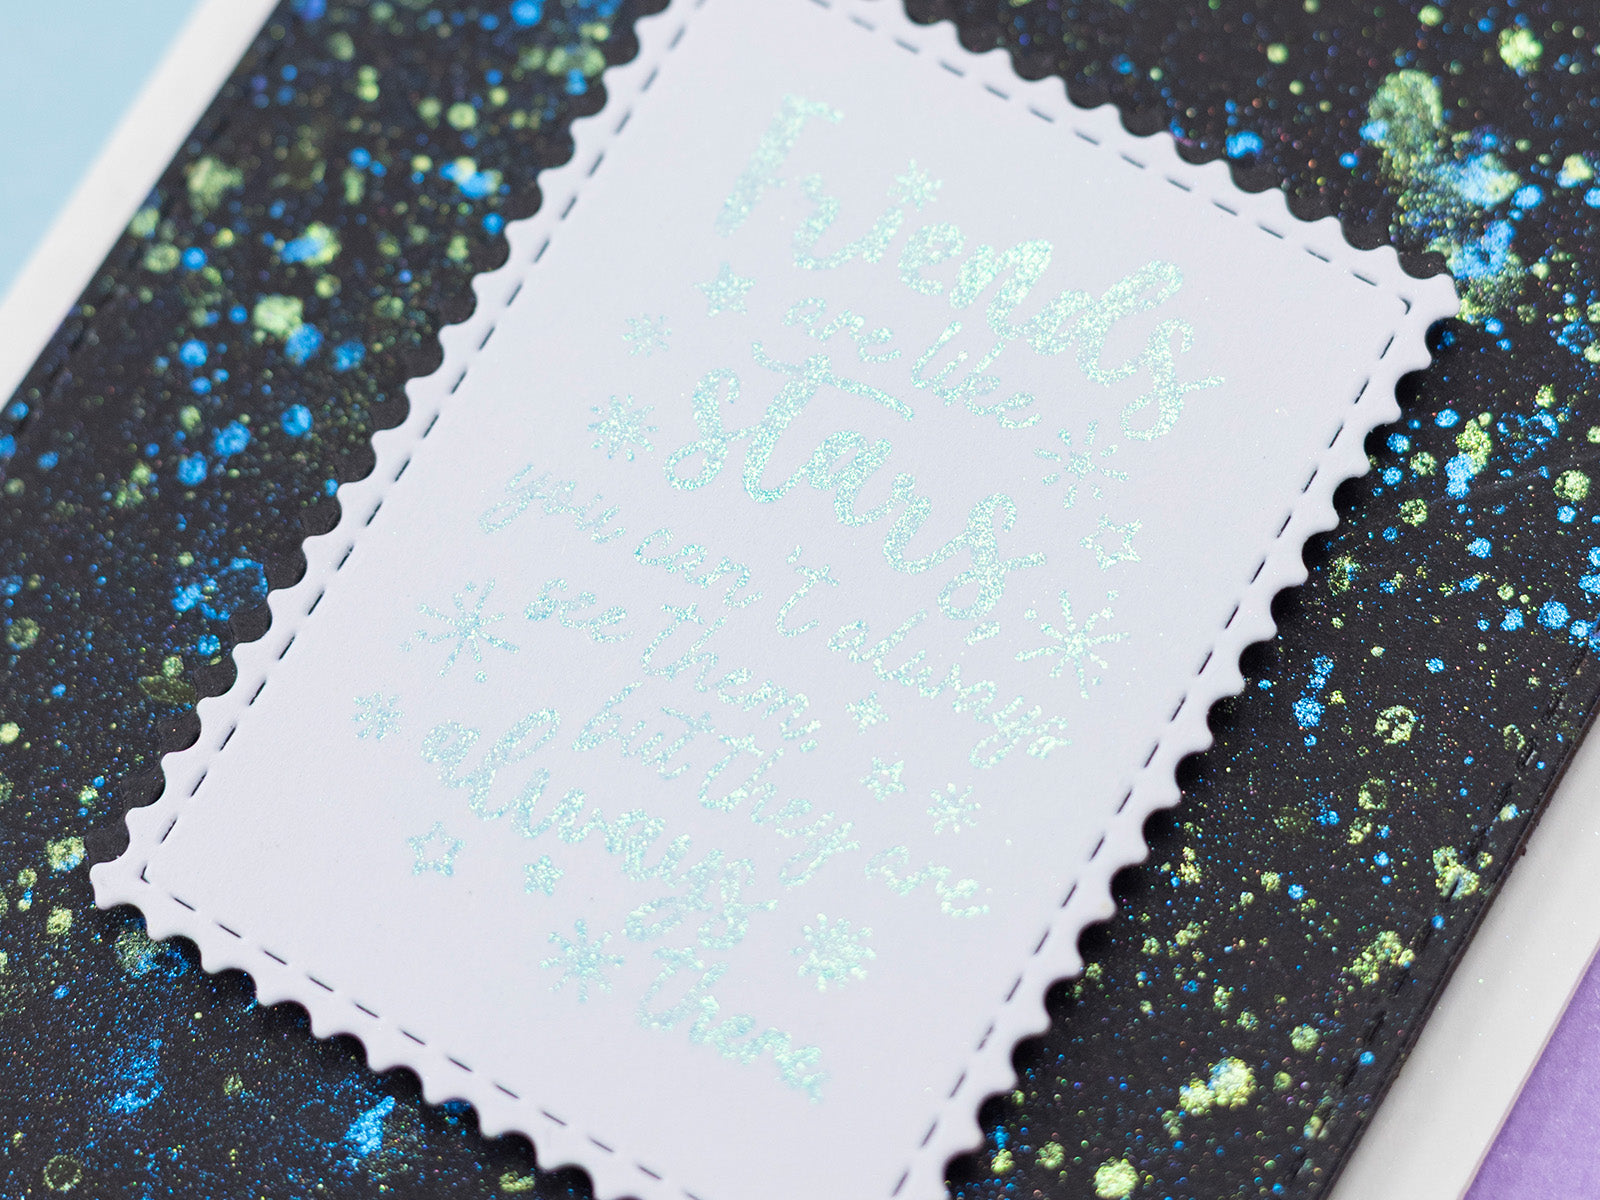 Friends
are like
stars
you can't always
see them,
but they are
always
there